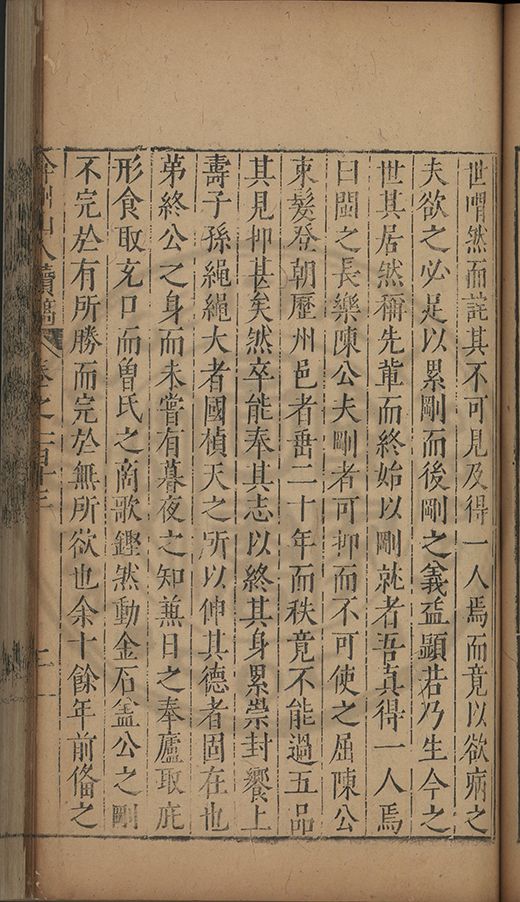 世喟然而詫其不可見及得一人焉而竟以欲病之
夫欲之必足以累剛而後剛之義益顯若乃生今之
世其居然稱先輩而終始以剛就者吾真得一人焉
曰閩之長樂陳公夫剛者可抑而不可使之屈陳公
束髮登朝歷州邑者垂二十年而秩竟不能過五品
其見抑甚矣然卒能奉其志以終其身累崇封饗上
壽子孫繩繩大者國楨天之所以伸其德者固在也
第終公之身而未嘗有暮夜之知兼日之奉廬取庇
形食取充口而曾氏之商歌鏗然動金石盖公之剛
不完於有所勝而完於無所欲也余十餘年前俻之
弇州山人續稿 卷之一百十三 二